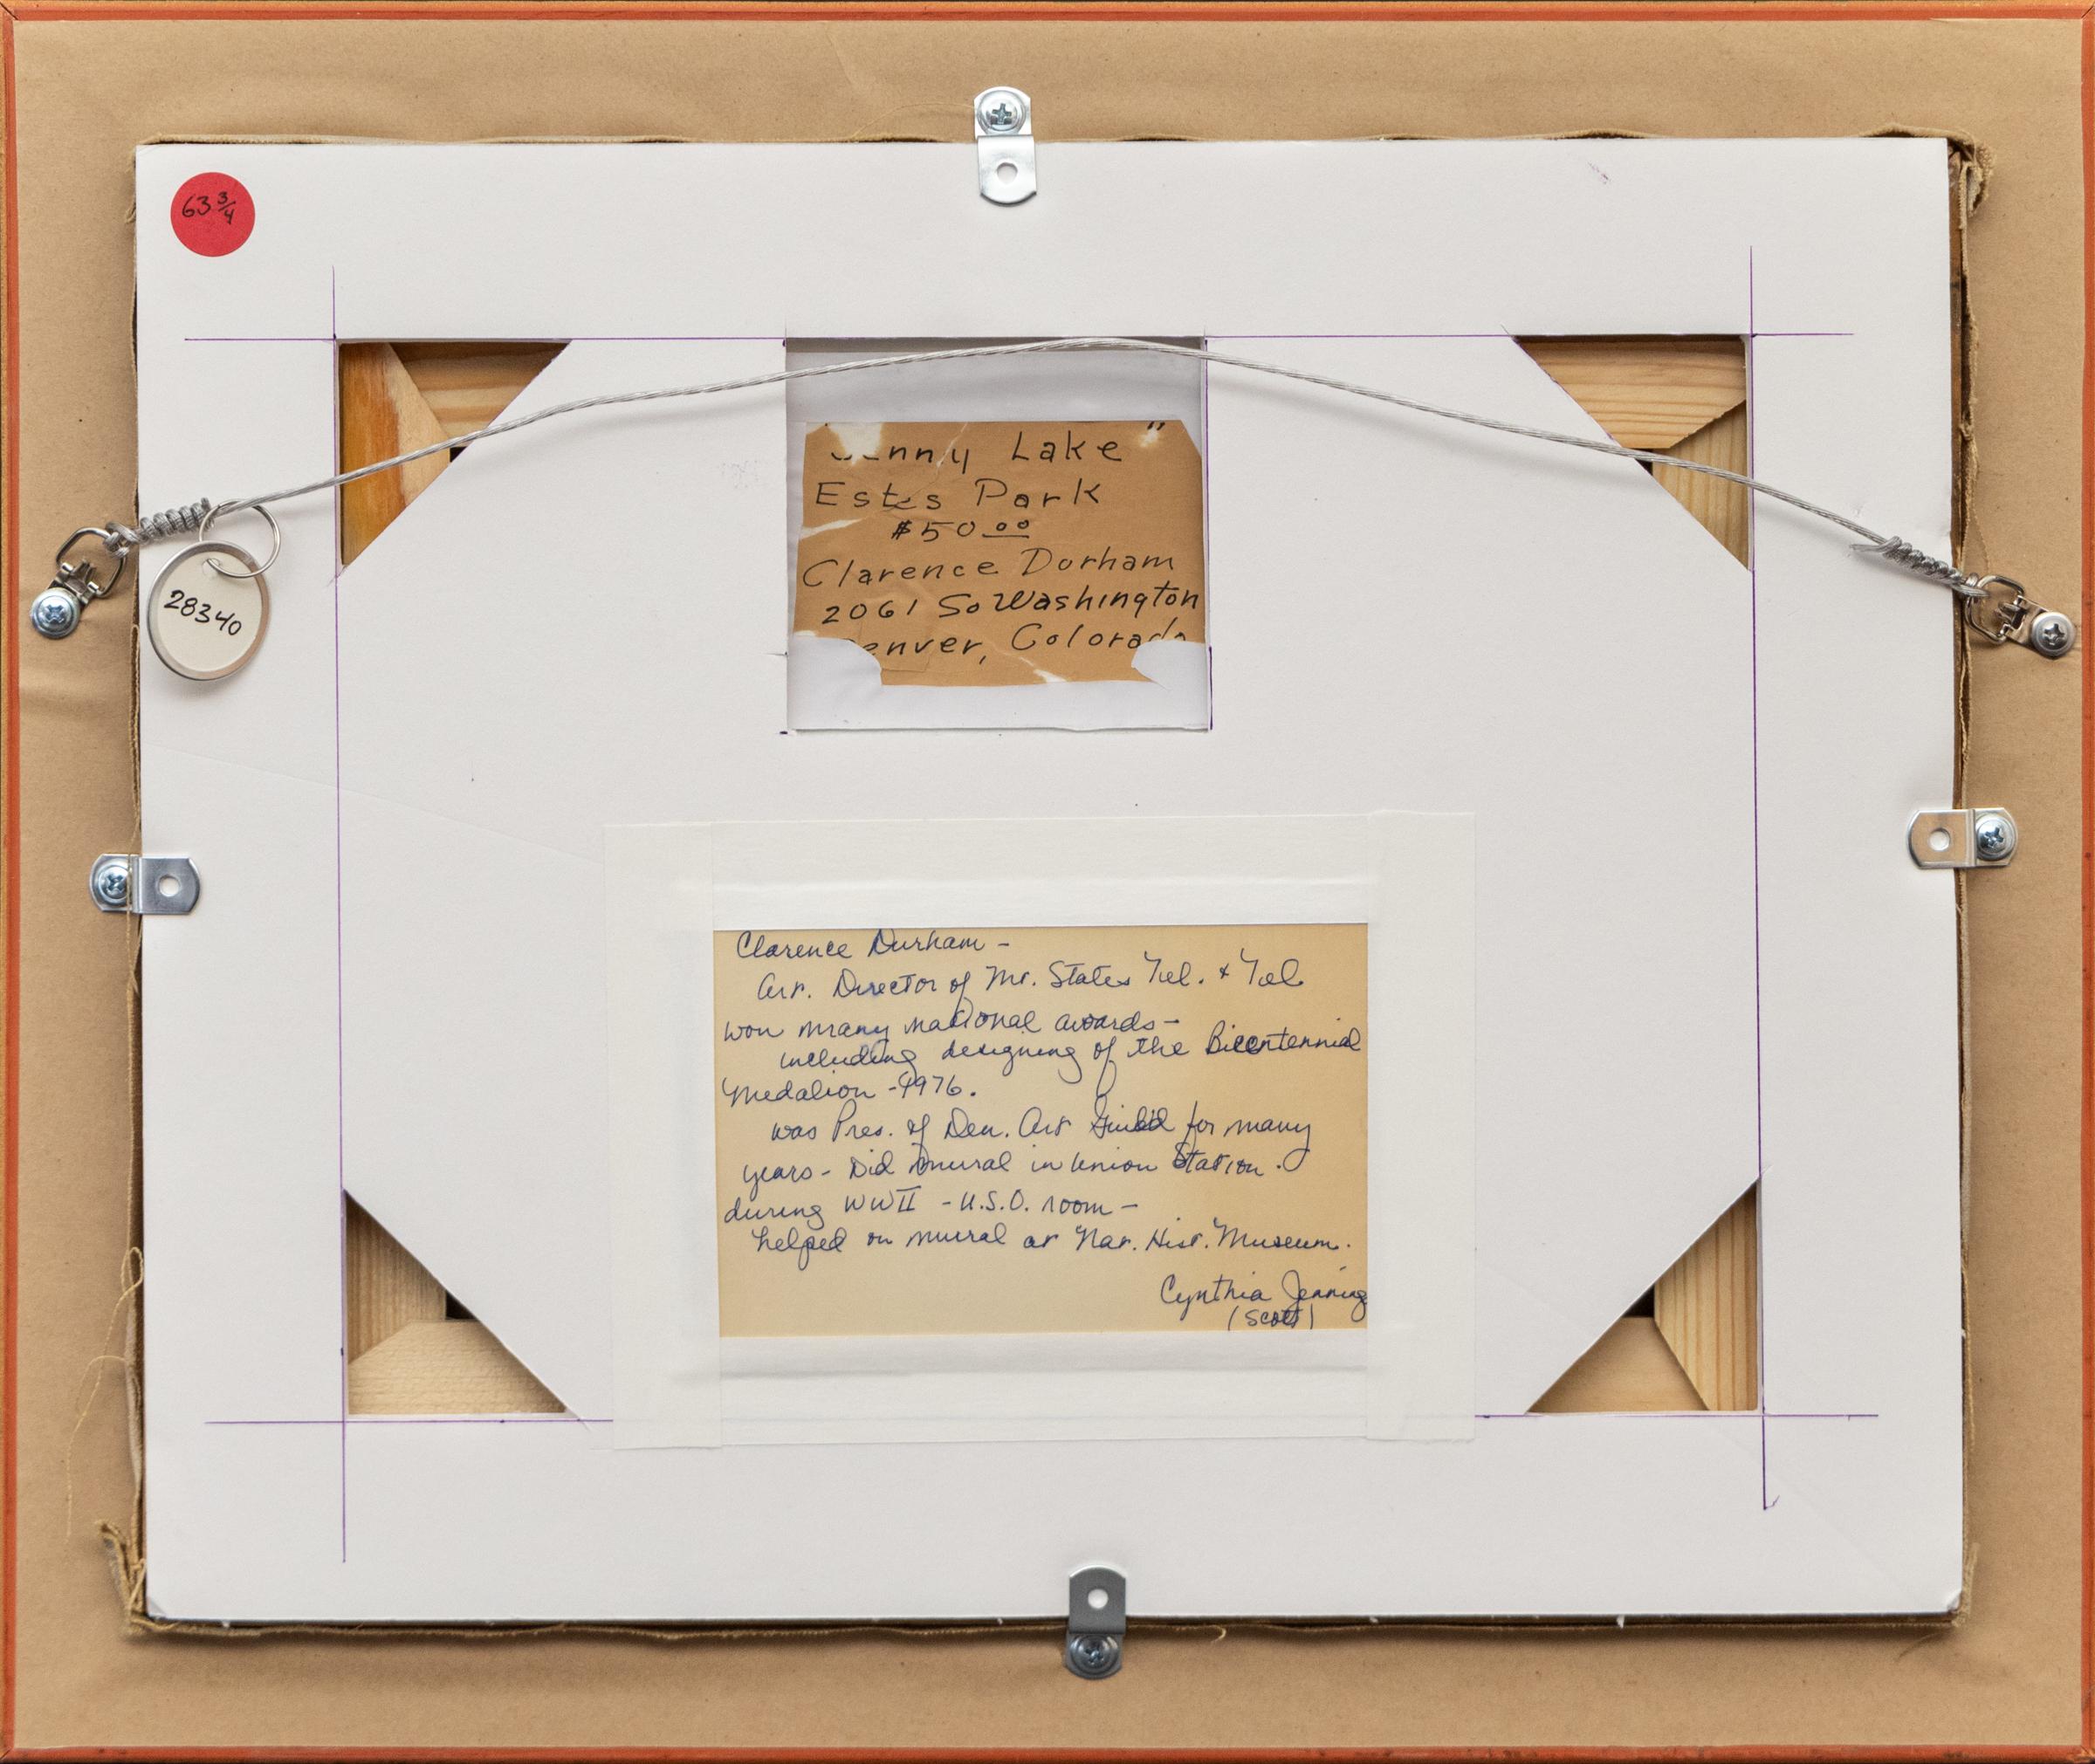 63 3/4
"Jenny Lake"
Estes Park
$50.00
Clarence Durham
2061 So Washington
Denver, Colorado
28340
Clarence Durham -
Art. Director of Mt. States Tel. & Tel.
won many national awards -
including designing of the Bicentennial
Medalion - 1976.
was Pres. of Den. Art Guild for many
years - Did mural in Union Station.
during WWII - U.S.O. room -
helped on mural at Nat. Hist. Museum.
Cynthia Jenning
(Scott)